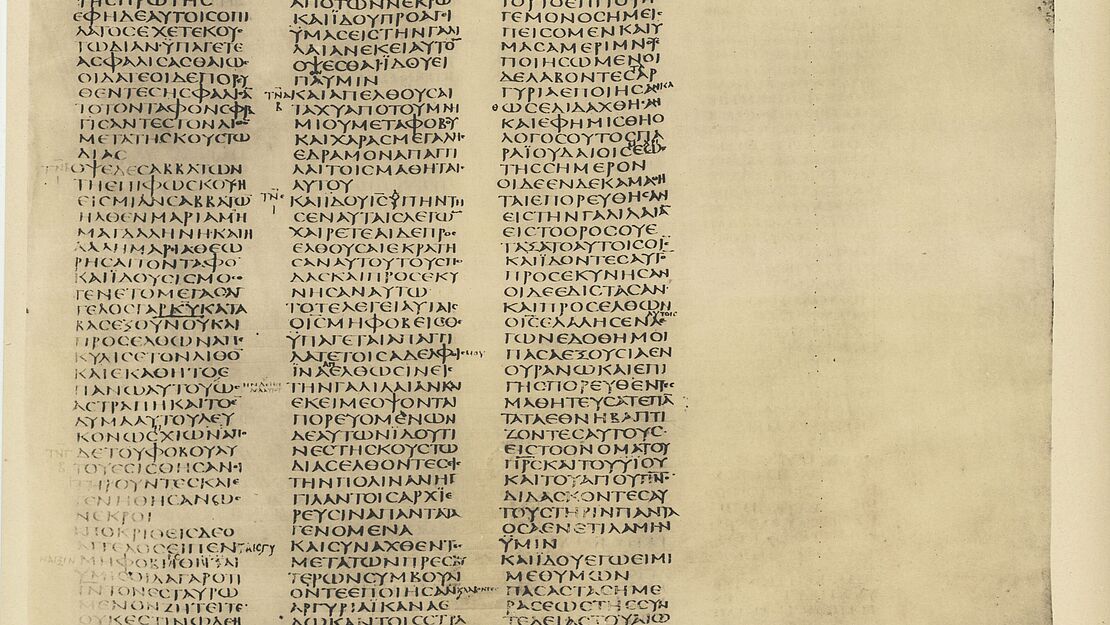 ΤΗϹΠΡΩΤΗϹ
ΕΦΗΔΕΑΥΤΟΙϹΟΠΙ
ΛΑΤΟϹΕΧΕΤΕΚΟΥ
ϹΤΩΔΙΑΝΫΠΑΓΕΤΕ
ΑϹΦΑΛΙϹΑϹΘΑΙΩϹ
ΟΙΔΑΤΕΟΙΔΕΠΟΡΥ
ΘΕΝΤΕϹΗϹΦΑΛΙϹΑ̅
ΤΟΤΟΝΤΑΦΟΝϹΦΡΑ
ΓΙϹΑΝΤΕϹΤΟΝΛΙΘΟ̅
ΜΕΤΑΤΗϹΚΟΥϹΤΩ
ΔΙΑϹ
ΟΨΕΔΕϹΑΒΒΑΤΩΝ
ΤΗΕΠΙΦΩϹΚΟΥϹΗ
ΕΙϹΜΙΑΝϹΑΒΒΑΤΩ̅
ΗΛΘΕΝΜΑΡΙΑΜΗ
ΜΑΓΔΑΛΗΝΗΚΑΙΗ
ΑΛΛΗΜΑΡΙΑΘΕΩ
ΡΗϹΑΙΤΟΝΤΑΦΟ̅
ΚΑΙΪΔΟΥϹΙϹΜΟϹΕ
ΓΕΝΕΤΟΜΕΓΑϹΑΓ
ΓΕΛΟϹΓΑΡΚ̅Υ̅ΚΑΤΑ
ΒΑϹΕΞΟΥΝΟΥΚΑΙ
ΠΡΟϹΕΛΘΩΝΑΠΕ
ΚΥΛΙϹΕΤΟΝΛΙΘΟ̅
ΚΑΙΕΚΑΘΗΤΟΕ
ΠΑΝΩΑΥΤΟΥΩϹ
ΑϹΤΡΑΠΗΚΑΙΤΟΕ̅
ΔΥΜΑΑΥΤΟΥΛΕΥ
ΚΟΝΩϹΧΙΩΝΑΠΟ
ΔΕΤΟΥΦΟΒΟΥΑΥ
ΤΟΥΕϹΙϹΘΗϹΑΝΟΙ
ΤΗΡΟΥΝΤΕϹΚΑΙΕ
ΓΕΝΗΘΗϹΑΝΩϹ
ΝΕΚΡΟΙ
ΑΠΟΚΡΙΘΕΙϹΔΕΟ
ΑΓΓΕΛΟϹΕΙΠΕΝΤΑΙϹΓΥ
ΜΗΦΟΒΗΘΗΤΑΙ
ΫΜΙϹΟΙΔΑΓΑΡΟΤΙ
Ι̅Ν̅ΤΟΝΕϹΤΑΥΡΩ
ΜΕΝΟΝΖΗΤΕΙΤΕ
ΟΥΚΕϹΤΙΝΩΔΕΗ
ΑΠΟΤΩΝΝΕΚΡΩ̅
ΚΑΙΪΔΟΥΠΡΟΑΓΙ
ΫΜΑϹΕΙϹΤΗΝΓΑΛΙ
ΛΑΙΑΝΕΚΕΙΑΥΤΟ̅
ΟΨΕϹΘΑΙΪΔΟΥΕΙ
ΠΑΫΜΙΝ
ΚΑΙΑΠΕΛΘΟΥϹΑΙ
ΤΑΧΥΑΠΟΤΟΥΜΝΗ
ΜΙΟΥΜΕΤΑΦΟΒΟΥ
ΚΑΙΧΑΡΑϹΜΕΓΑΛΗϹ
ΕΔΡΑΜΟΝΑΠΑΓΓΙ
ΛΑΙΤΟΙϹΜΑΘΗΤΑΙϹ
ΑΥΤΟΥ
ΚΑΙΪΔΟΥΙ̅Ϲ̅ΫΠΗΝΤΗ
ϹΕΝΑΥΤΑΙϹΛΕΓΩ̅
ΧΑΙΡΕΤΕΑΙΔΕΠΡΟϹ
ΕΛΘΟΥϹΑΙΕΚΡΑΤΗ
ϹΑΝΑΥΤΟΥΤΟΥϹΠΟ
ΔΑϹΚΑΙΠΡΟϹΕΚΥ
ΝΗϹΑΝΑΥΤΩ
ΤΟΤΕΛΕΓΕΙΑΥΤΑΙϹ
ΟΙ̅Ϲ̅ΜΗΦΟΒΕΙϹΘΕ
ΫΠΑΓΕΤΑΙΑΠΑΓΓΙ
ΛΑΤΕΤΟΙϹΑΔΕΛΦΟΙϹΜΟΥ
ΪΝΑΕΛΘΩϹΙΝΕΙϹ
ΤΗΝΓΑΛΙΛΑΙΑΝΚΑΙ
ΕΚΕΙΜΕΟΨΟΝΤΑΙ
ΠΟΡΕΥΟΜΕΝΩΝ
ΔΕΑΥΤΩΝΪΔΟΥΤΙ
ΝΕϹΤΗϹΚΟΥϹΤΩ
ΔΙΑϹΕΛΘΟΝΤΕϹΕΙϹ
ΤΗΝΠΟΛΙΝΑΝΗΓ
ΓΙΛΑΝΤΟΙϹΑΡΧΙΕ
ΡΕΥϹΙΝΑΠΑΝΤΑΤΑ
ΓΕΝΟΜΕΝΑ
ΚΑΙϹΥΝΑΧΘΕΝΤΕϹ
ΜΕΤΑΤΩΝΠΡΕϹΒΥ
ΤΕΡΩΝϹΥΜΒΟΥΛΙ
ΟΝΤΕΕΠΟΙΗϹΑΝ
ΑΡΓΥΡΙΑΪΚΑΝΑΕ
ΔΩΚΑΝΤΟΙϹϹΤΡΑ
ΓΕΜΟΝΟϹΗΜΕΙϹ
ΠΕΙϹΟΜΕΝΚΑΙΥ
ΜΑϹΑΜΕΡΙΜΝΟΥϹ
ΠΟΙΗϹΩΜΕΝΟΙ
ΔΕΛΑΒΟΝΤΕϹΑΡ
ΓΥΡΙΑΕΠΟΙΗϹΑΝ
ΩϹΕΔΙΔΑΧΘΗϹΑΝ
ΚΑΙΕΦΗΜΙϹΘΗΟ
ΛΟΓΟϹΟΥΤΟϹΠΑ
ΡΑΪΟΥΔΑΙΟΙϹΕΩϹ
ΤΗϹϹΗΜΕΡΟΝ
ΟΙΔΕΕΝΔΕΚΑΜΑΘΗ
ΤΑΙΕΠΟΡΕΥΘΗϹΑΝ
ΕΙϹΤΗΝΓΑΛΙΛΑΙΑ̅
ΕΙϹΤΟΟΡΟϹΟΥΕ
ΤΑΞΑΤΟΑΥΤΟΙϹΟΙ̅Ϲ̅
ΚΑΙΪΔΟΝΤΕϹΑΥΤΟ̅
ΠΡΟϹΕΚΥΝΗϹΑΝ
ΟΙΔΕΕΔΙϹΤΑϹΑΝ
ΚΑΙΠΡΟϹΕΛΘΩΝ
ΟΙ̅Ϲ̅ΕΛΑΛΗϹΕΝΑΥΤΟΙϹ
ΓΩΝΕΔΟΘΗΜΟΙ
ΠΑϹΑΕΞΟΥϹΙΑΕΝ
ΟΥΡΑΝΩΚΑΙΕΠΙ
ΓΗϹΠΟΡΕΥΘΕΝΤΕϹ
ΜΑΘΗΤΕΥϹΑΤΕΠΑ̅
ΤΑΤΑΕΘΝΗΒΑΠΤΙ
ΖΟΝΤΕϹΑΥΤΟΥϹ
ΕΙϹΤΟΟΝΟΜΑΤΟΥ
Π̅Ρ̅Ϲ̅ΚΑΙΤΟΥΥΪΟΥ
ΚΑΙΤΟΥΑΓΙΟΥΠ̅Ν̅Ϲ̅
ΔΙΔΑϹΚΟΝΤΕϹΑΥ
ΤΟΥϹΤΗΡΙΝΠΑΝΤΑ
ΟϹΑΕΝΕΤΙΛΑΜΗΝ
ΫΜΙΝ
ΚΑΙΪΔΟΥΕΓΩΕΙΜΙ
ΜΕΘΥΜΩΝ
ΠΑϹΑϹΤΑϹΗΜΕ
ΡΑϹΕΩϹΤΗϹϹΥΝ
ΤΕΛΕΙΑϹΤΟΥΑΙΩ